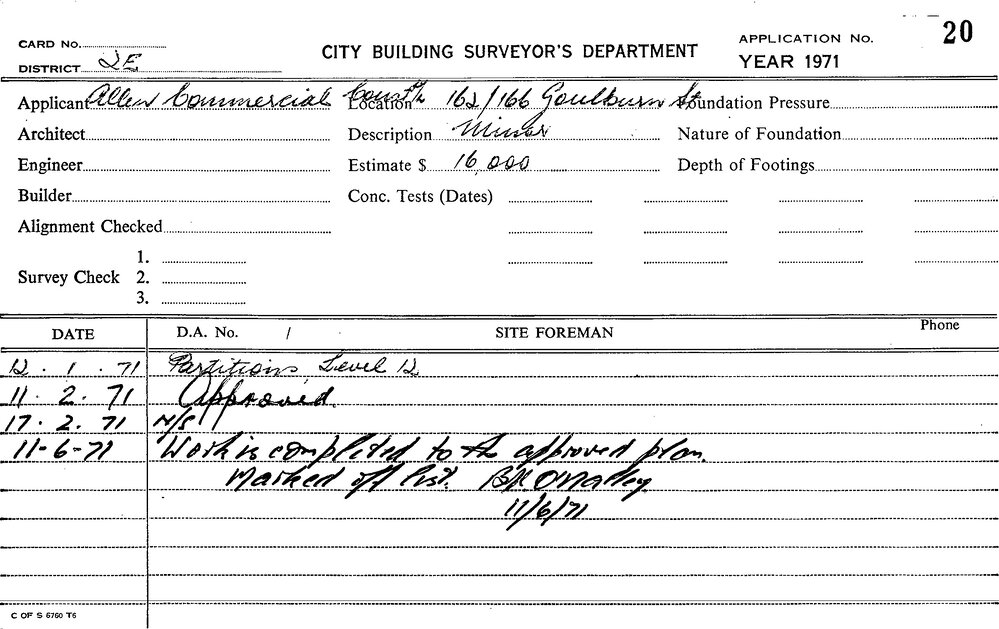 CARD No.
DISTRICT 2E
CITY BUILDING SURVEYOR'S DEPARTMENT
APPLICATION No. 20
YEAR 1971
Applicant Allen Commercial Constn Location 162/166 Goulburn St Foundation Pressure
Architect Description Minor Nature of Foundation
Engineer Estimate $ 16,000 Depth of Footings
Builder Conc. Tests (Dates)
Alignment Checked
Survey Check 1.
2.
3.
DATE D.A. No. / SITE FOREMAN Phone
12 . 1 . 71 Partitions, Level 12
11 . 2 . 71 Approved.
17 . 2 . 71 N/S
11-6-71 Work is completed to the approved plan.
Marked off list.
11/6/71
C OF S 6760 T6